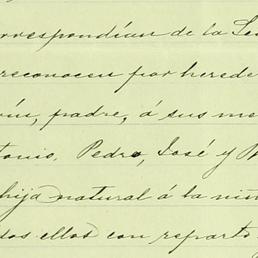 orrespondían de la Se
reconocen por herede
ún, padre, á sus me
tonio, Pedro, José y
hija natural á la niñ
dos ellos con reparto